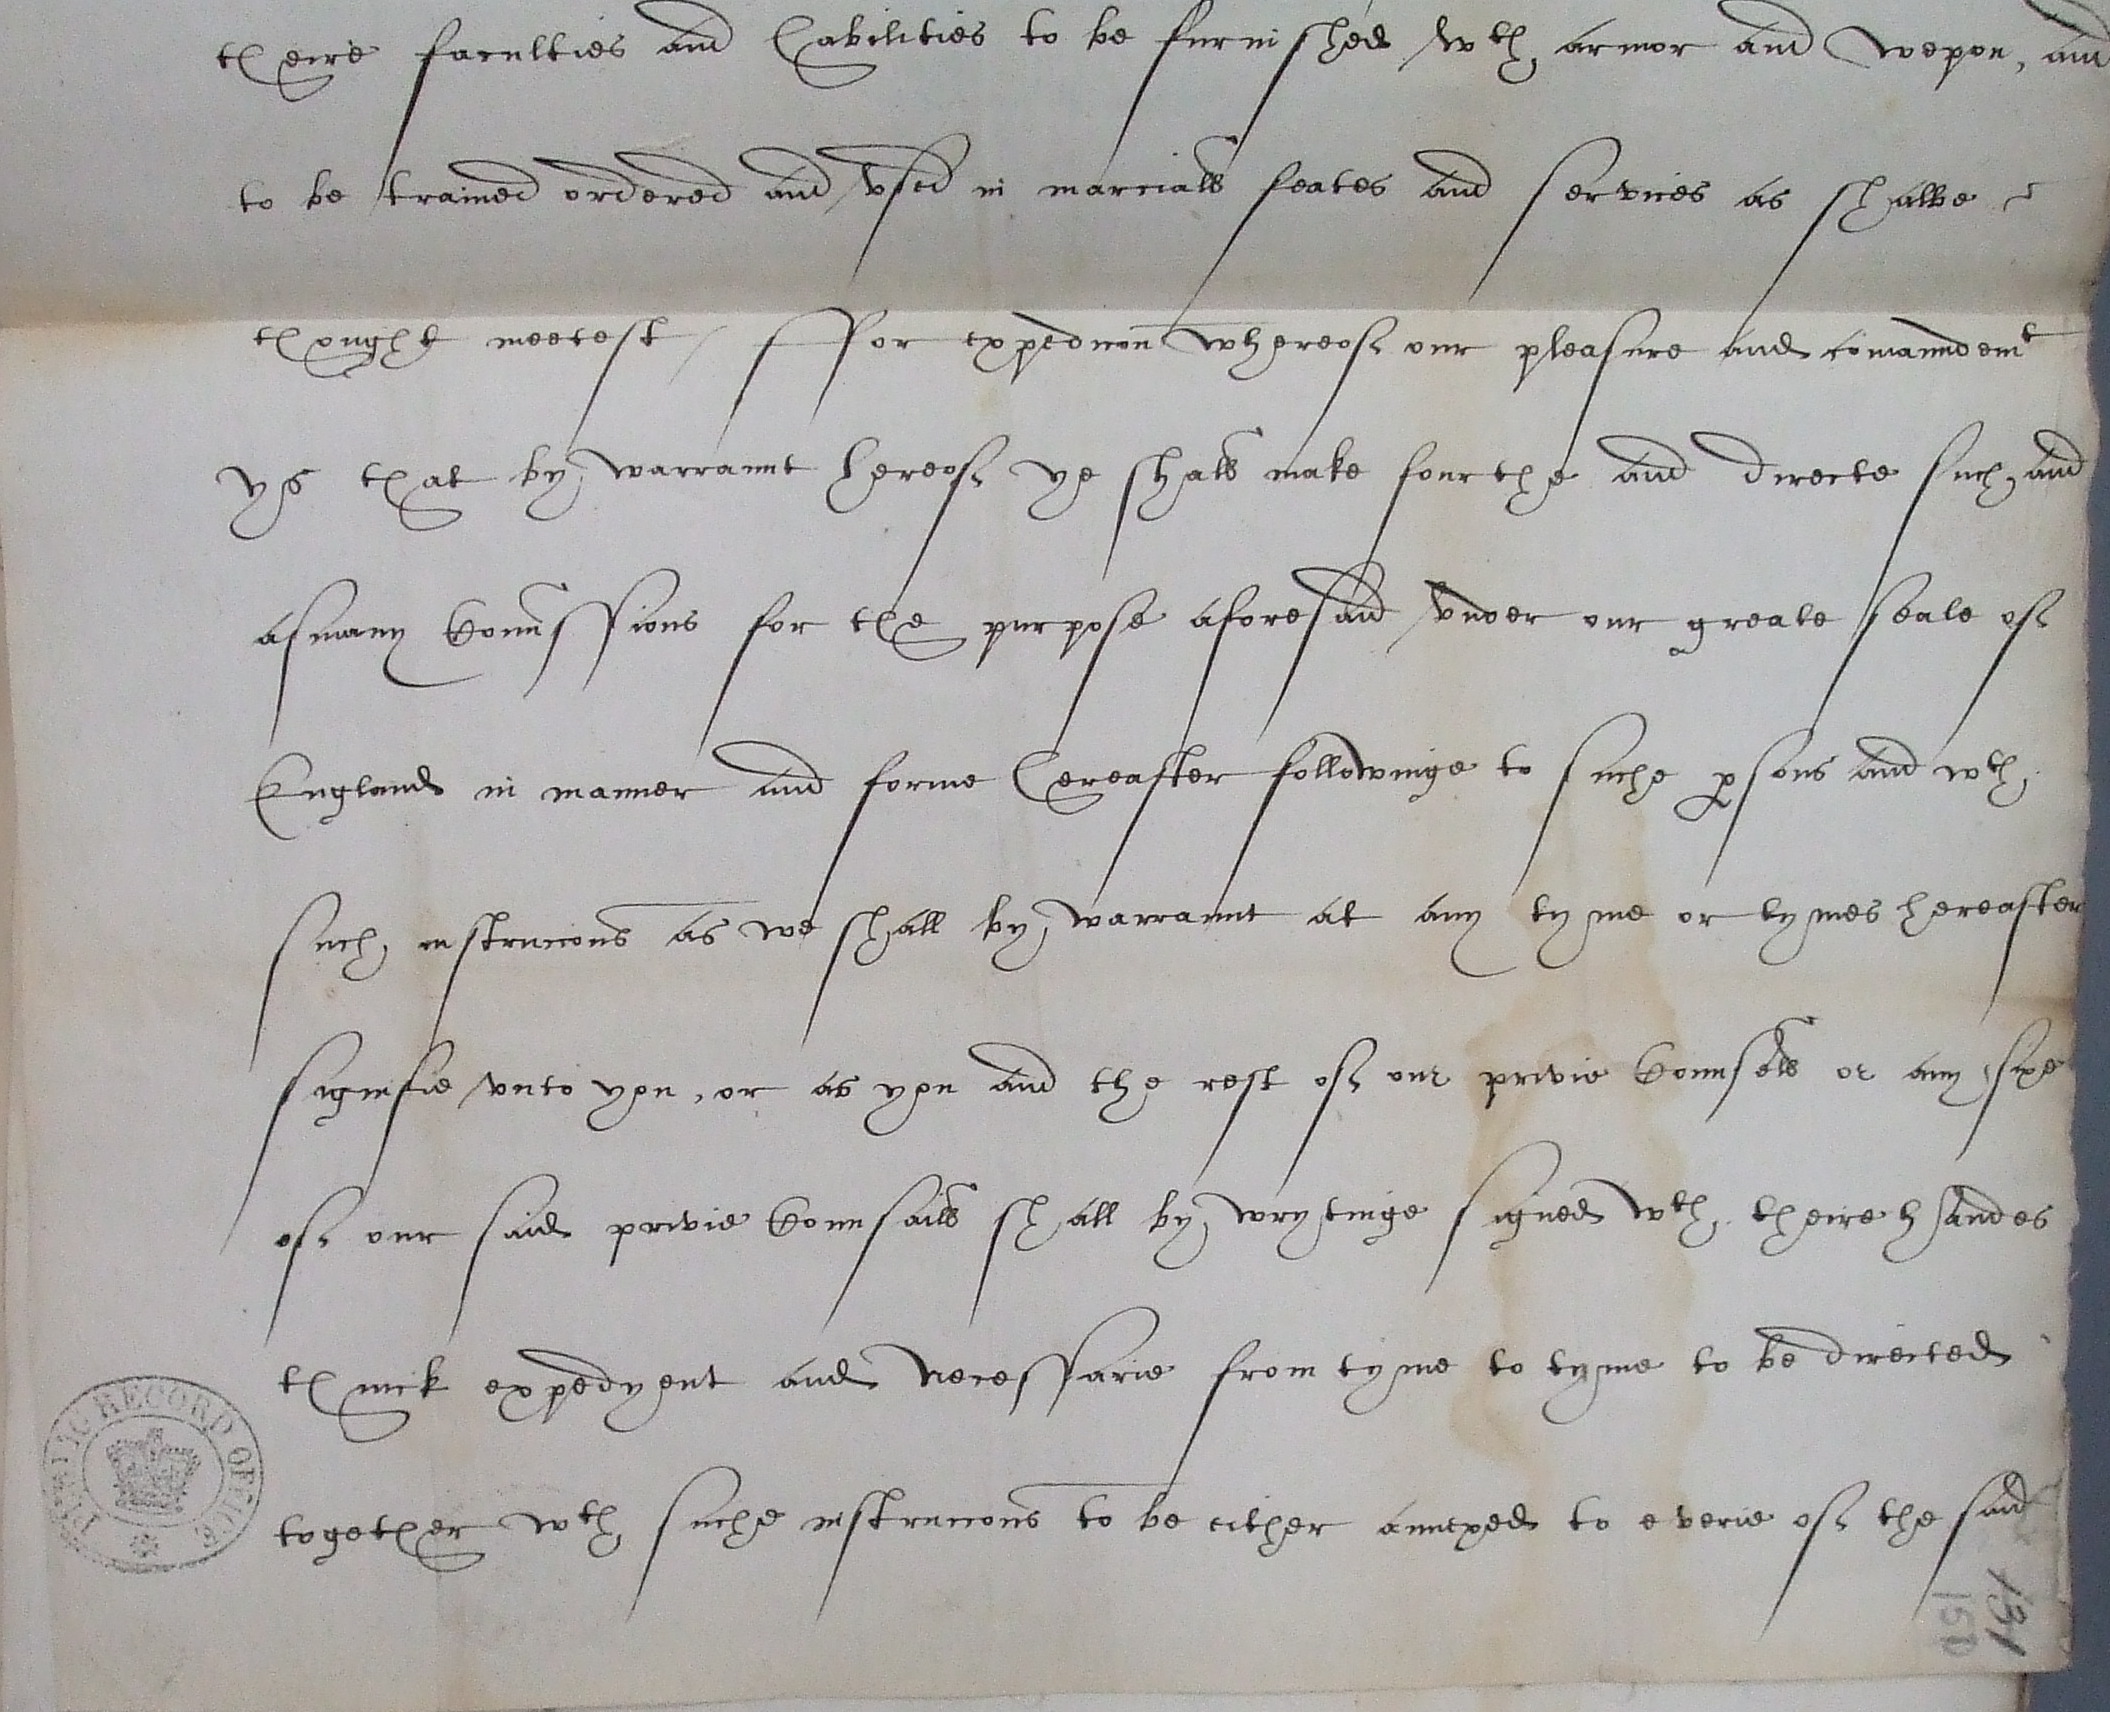 theire faculties and habilities to be furnished wth armor and wepon, and
to be trained ordered and vsed in marciall feates and services as shalbe
thought meetest / ffor expedicon whereof our pleasure and comaundemt
ys that by warraunt hereof ye shall make fourthe and directe such and
asmany Comissions for the purpose aforesaid vnder our greate seale of
England in manner and forme hereafter followinge to suche psons and wth
such instrucons as we shall by warraunt at any tyme or tymes hereafter
signifie vnto you, or as you and the rest of our privie Counsell or any sixe
of our said privie Counsaill shall by wrytinge signed wth theire handes
think expedyent and necessarie from tyme to tyme to be directed
together wth suche instrucons to be either annexed to everie of the said
PUBLIC RECORD OFFICE
131
150